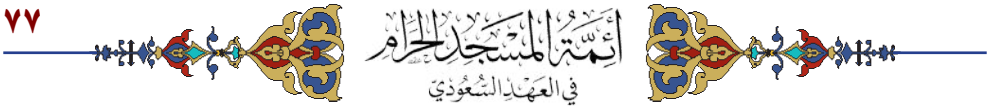 ٧٧
أَئِمَّةُ المَسْجِدِ الحَرَامِ
في العَهْدِ السُّعُودِيّ